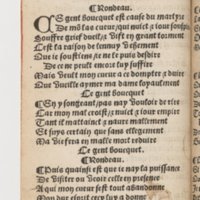 ¶Rondeau.
CE gent boucquet est cause du martyre
De mõ las cueur, qui nuict & iour souspire
Souffre grief dueil, & vit en grant tourment
Cest la raison de lennuy vehement
Que ie soustiens & ne le puis desdire
De ce ne peult encor tuy suffire
Mais veult mon cueur a ce dompter & duire
Que vueille aymer ma dame loyaulment
Ce gent boucquet
¶Sy y songeant, pas nay vouloir de rire
Car mon mal croist, & nuict & iour empire
Tant il mattainct & naure mallement
Et suys certain que sans allegement
Ma vie yra tellement
Ce gent boucquet.
¶Rondeau.
PUis quainsi est que ie nay la puissance
De visiter vo celle presence
A qui mon cueur sest tout abandonne
Mon dur soucy